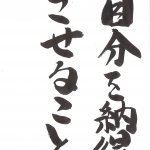 自分を納得
させること